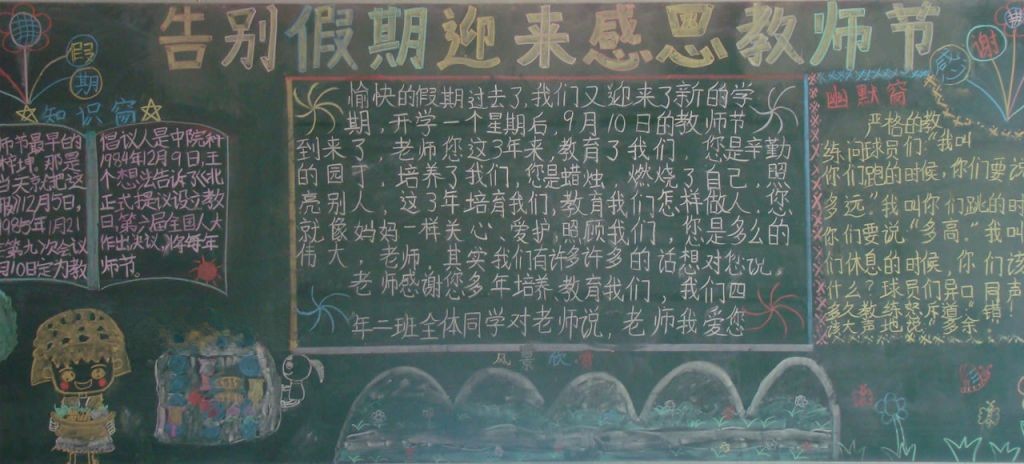 告别假期迎来感恩教师节
假
期
知识窗
师节最早的
那是
当天就把这
12月5日,
1985年1月21
第九次会议
月10日定为教
倡议人是中院
1984年12月9日,王
个想法告诉了北
正式提议设立教
日,第六届全国人大
作出决议,将每年
师节。
愉快的假期过去了,我们又迎来了新的学
期,开学一个星期后,9月10日的教师节
到来了,老师您这3年来,教育了我们,您是辛勤
的园丁,培养了我们,您是蜡烛,燃烧了自己,照
亮别人,这3年培育我们,教育我们怎样做人,您
就像妈妈一样关心、爱护、照顾我们,您是多么的
伟大,老师,其实我们有许多许多的话想对您说。
老师感谢您多年培养、教育我们,我们四
年二班全体同学对老师说,老师我爱您
风景欣赏
谢
幽默窗
严格的教
练问球员们:“我叫
你们跑的时候,你们要说
多远。”我叫你们跳的时
你们要说“多高。”我叫
们休息的时候,你们该
什么?球员们异口同声
“多余!”